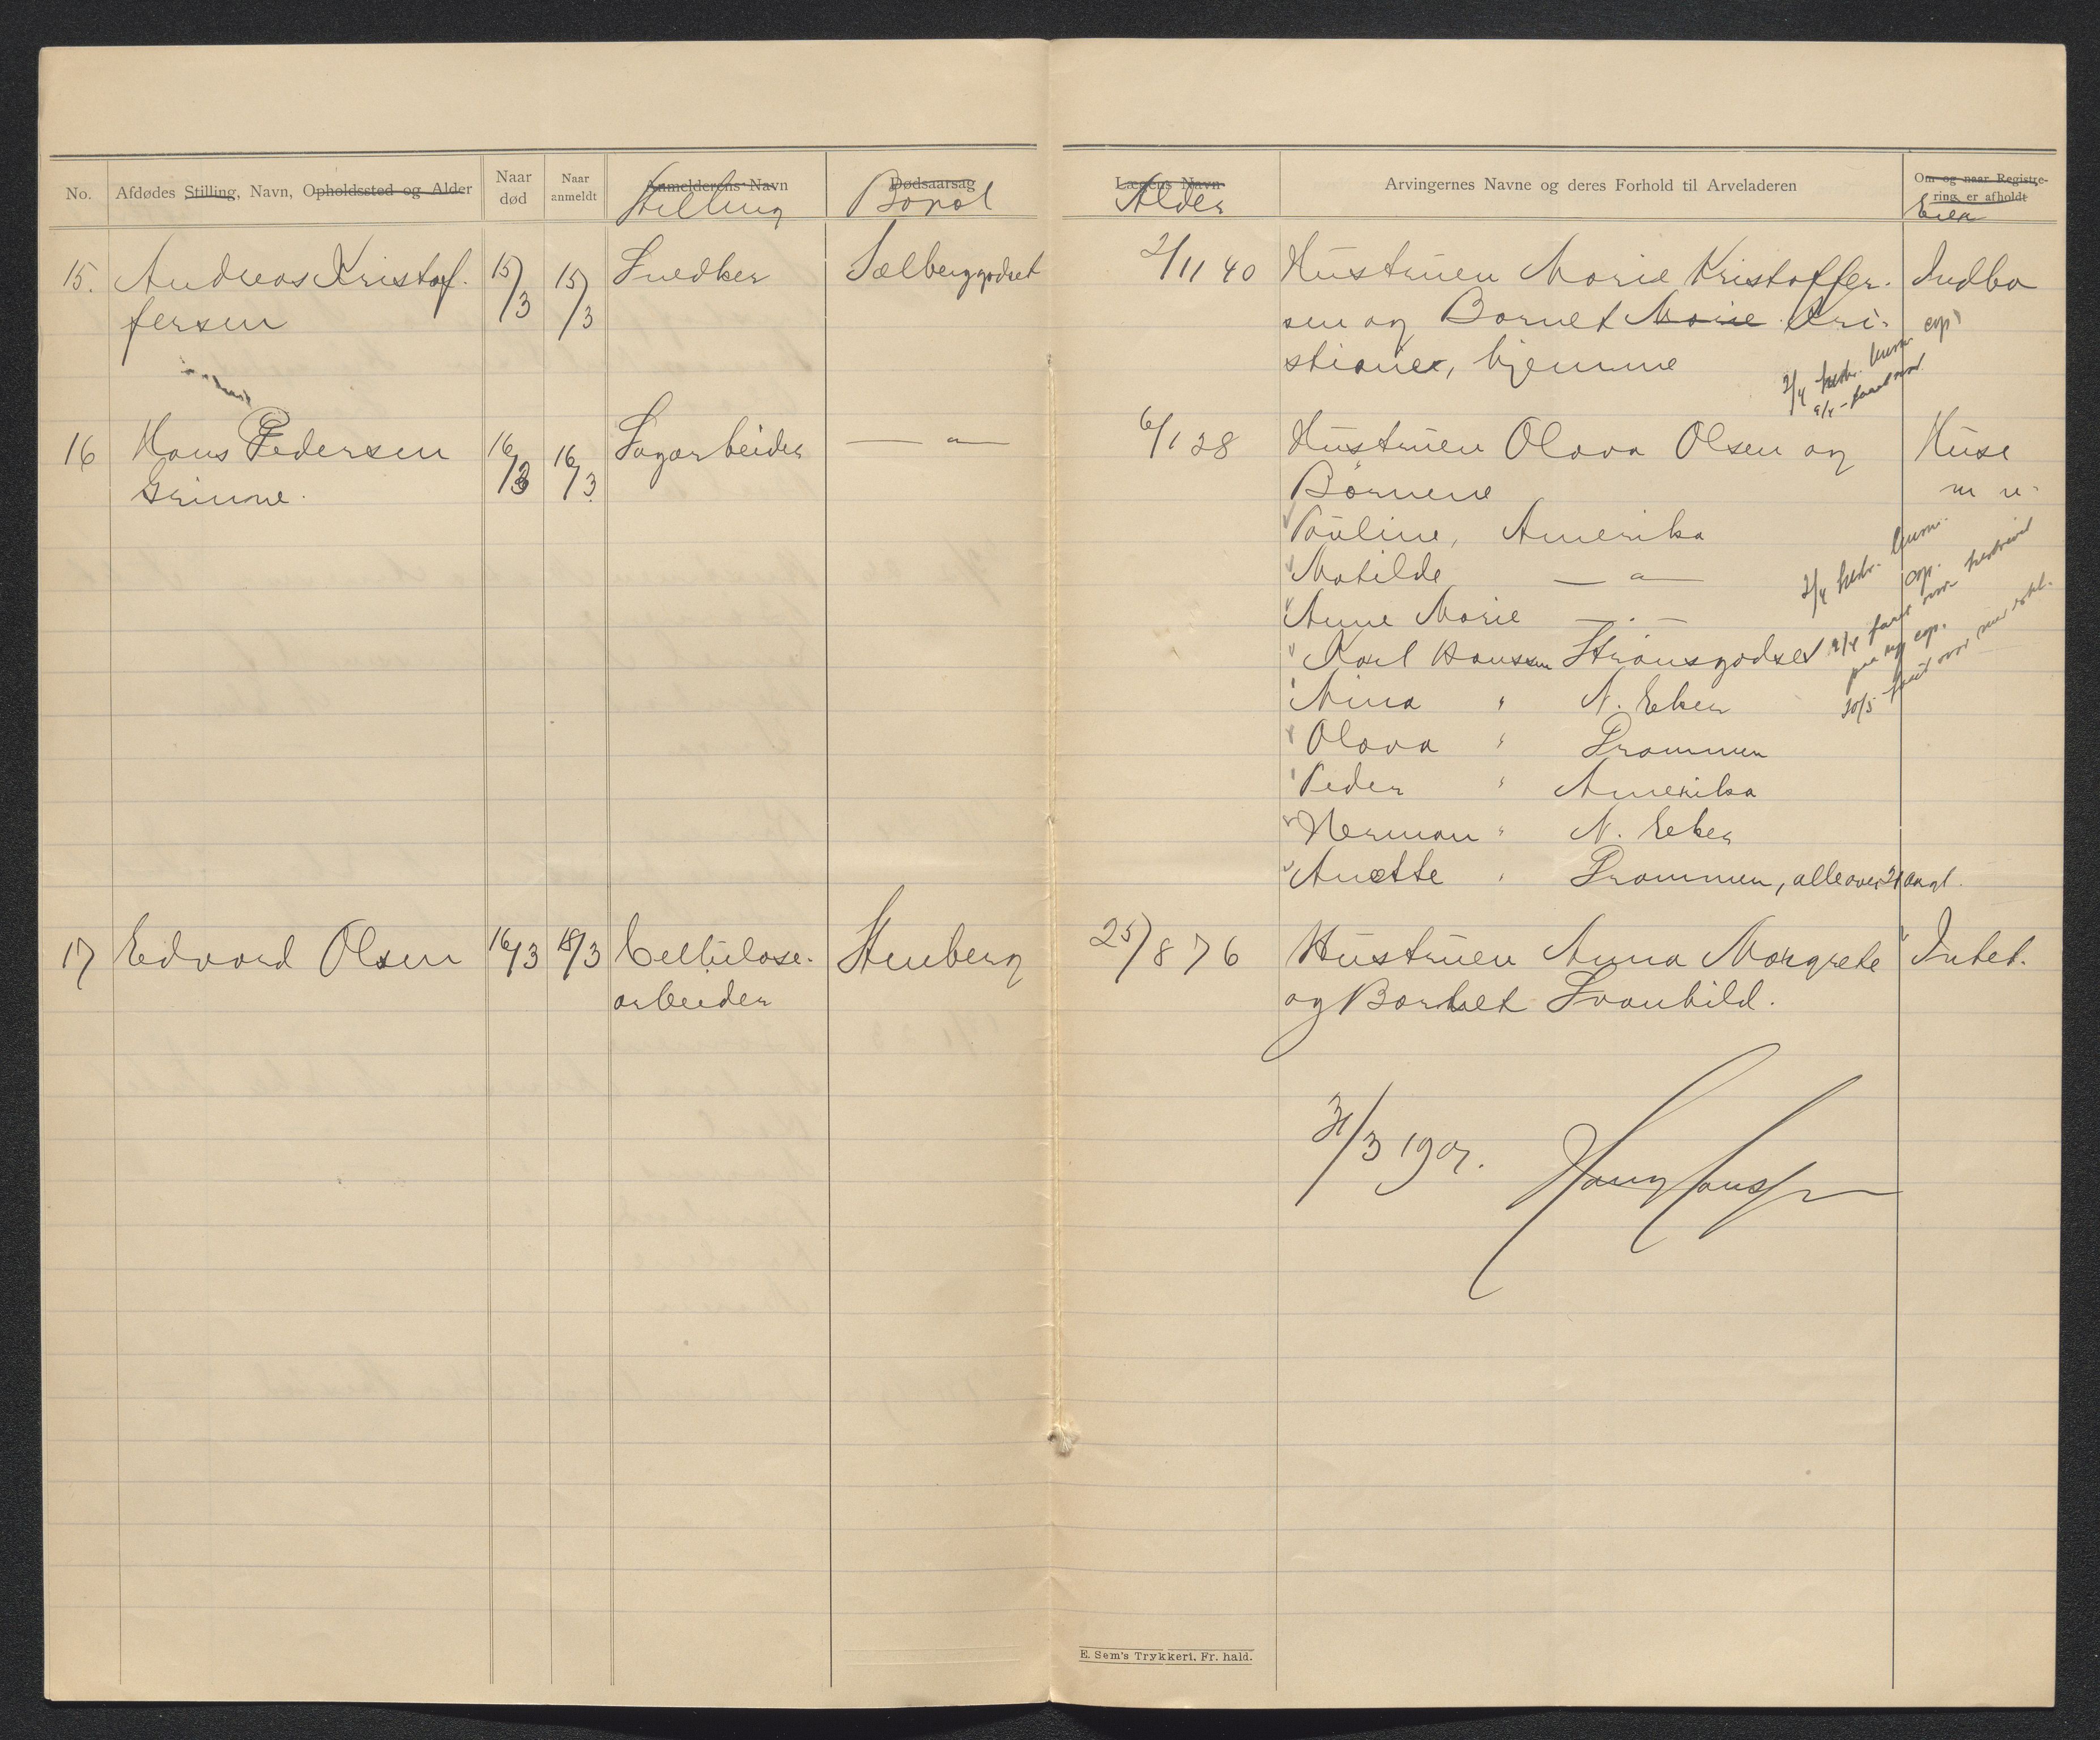 No. Afdødes Stilling, Navn, Opholdssted og Alder
Naar død
Naar anmeldt
Anmelderens Navn
Stilling
Dødsaarsag
Bopæl
Lægens Navn
Alder
Arvingernes Navne og deres Forhold til Arveladeren
Om og naar Registrering er afholdt
Eier
15. Andreas Kristof- 15/3 15/3 Snedker Sælberggodset 2/11 40 Hustruen Marie Kristoffer- Indbo
fersen
sen og Barnet Marie Kri-
stiane, hjemme
16 Hans Pedersen 16/3 16/3 Sagarbeider — " — 6/1 28 Hustruen Olava Olsen og Huse
Grinne.
Børnene m re.
Pauline, Amerika
Matilde — " —
Anne Marie — . —
Karl Hanssen Strømsgodset
Nina " N. Eker
Olava " Drammen
Peder " Amerika
Herman " N. Eker
Anette " Drammen, alle over 21 aar gl.
17 Edvard Olsen 16/3 18/3 Cellulose- Stenberg 25/8 76 Hustruen Anna Margrete Intet.
arbeider
og Barnet Svanhild.
31/3 1907.
E. Sem's Trykkeri, Fr. hald.